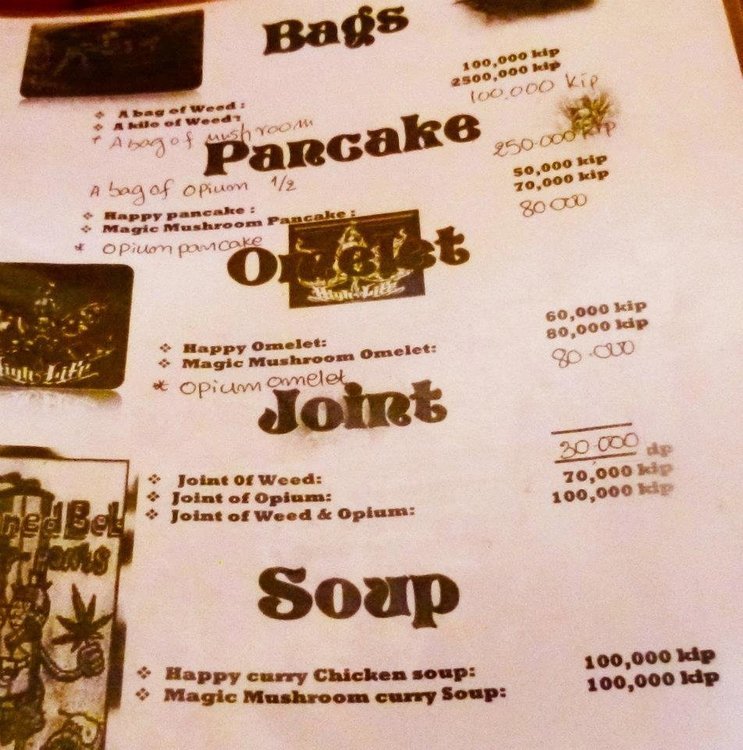 Bags
A bag of Weed : 100,000 kip
A kilo of Weed : 2500,000 kip
* A bag of mushroom 100.000 kip
Pancake
A bag of opium 1/2 250.000 kip
Happy pancake : 50,000 kip
Magic Mushroom Pancake : 70,000 kip
* Opium pancake 80 000
Omelet
High Life
Happy Omelet: 60,000 kip
Magic Mushroom Omelet: 80,000 kip
* Opium omelet 80.000
High Life
Joint
Joint Of Weed: 30.000
Joint of Opium: 70,000 kip
Joint of Weed & Opium: 100,000 kip
Soup
Happy curry Chicken soup: 100,000 kip
Magic Mushroom curry Soup: 100,000 kip